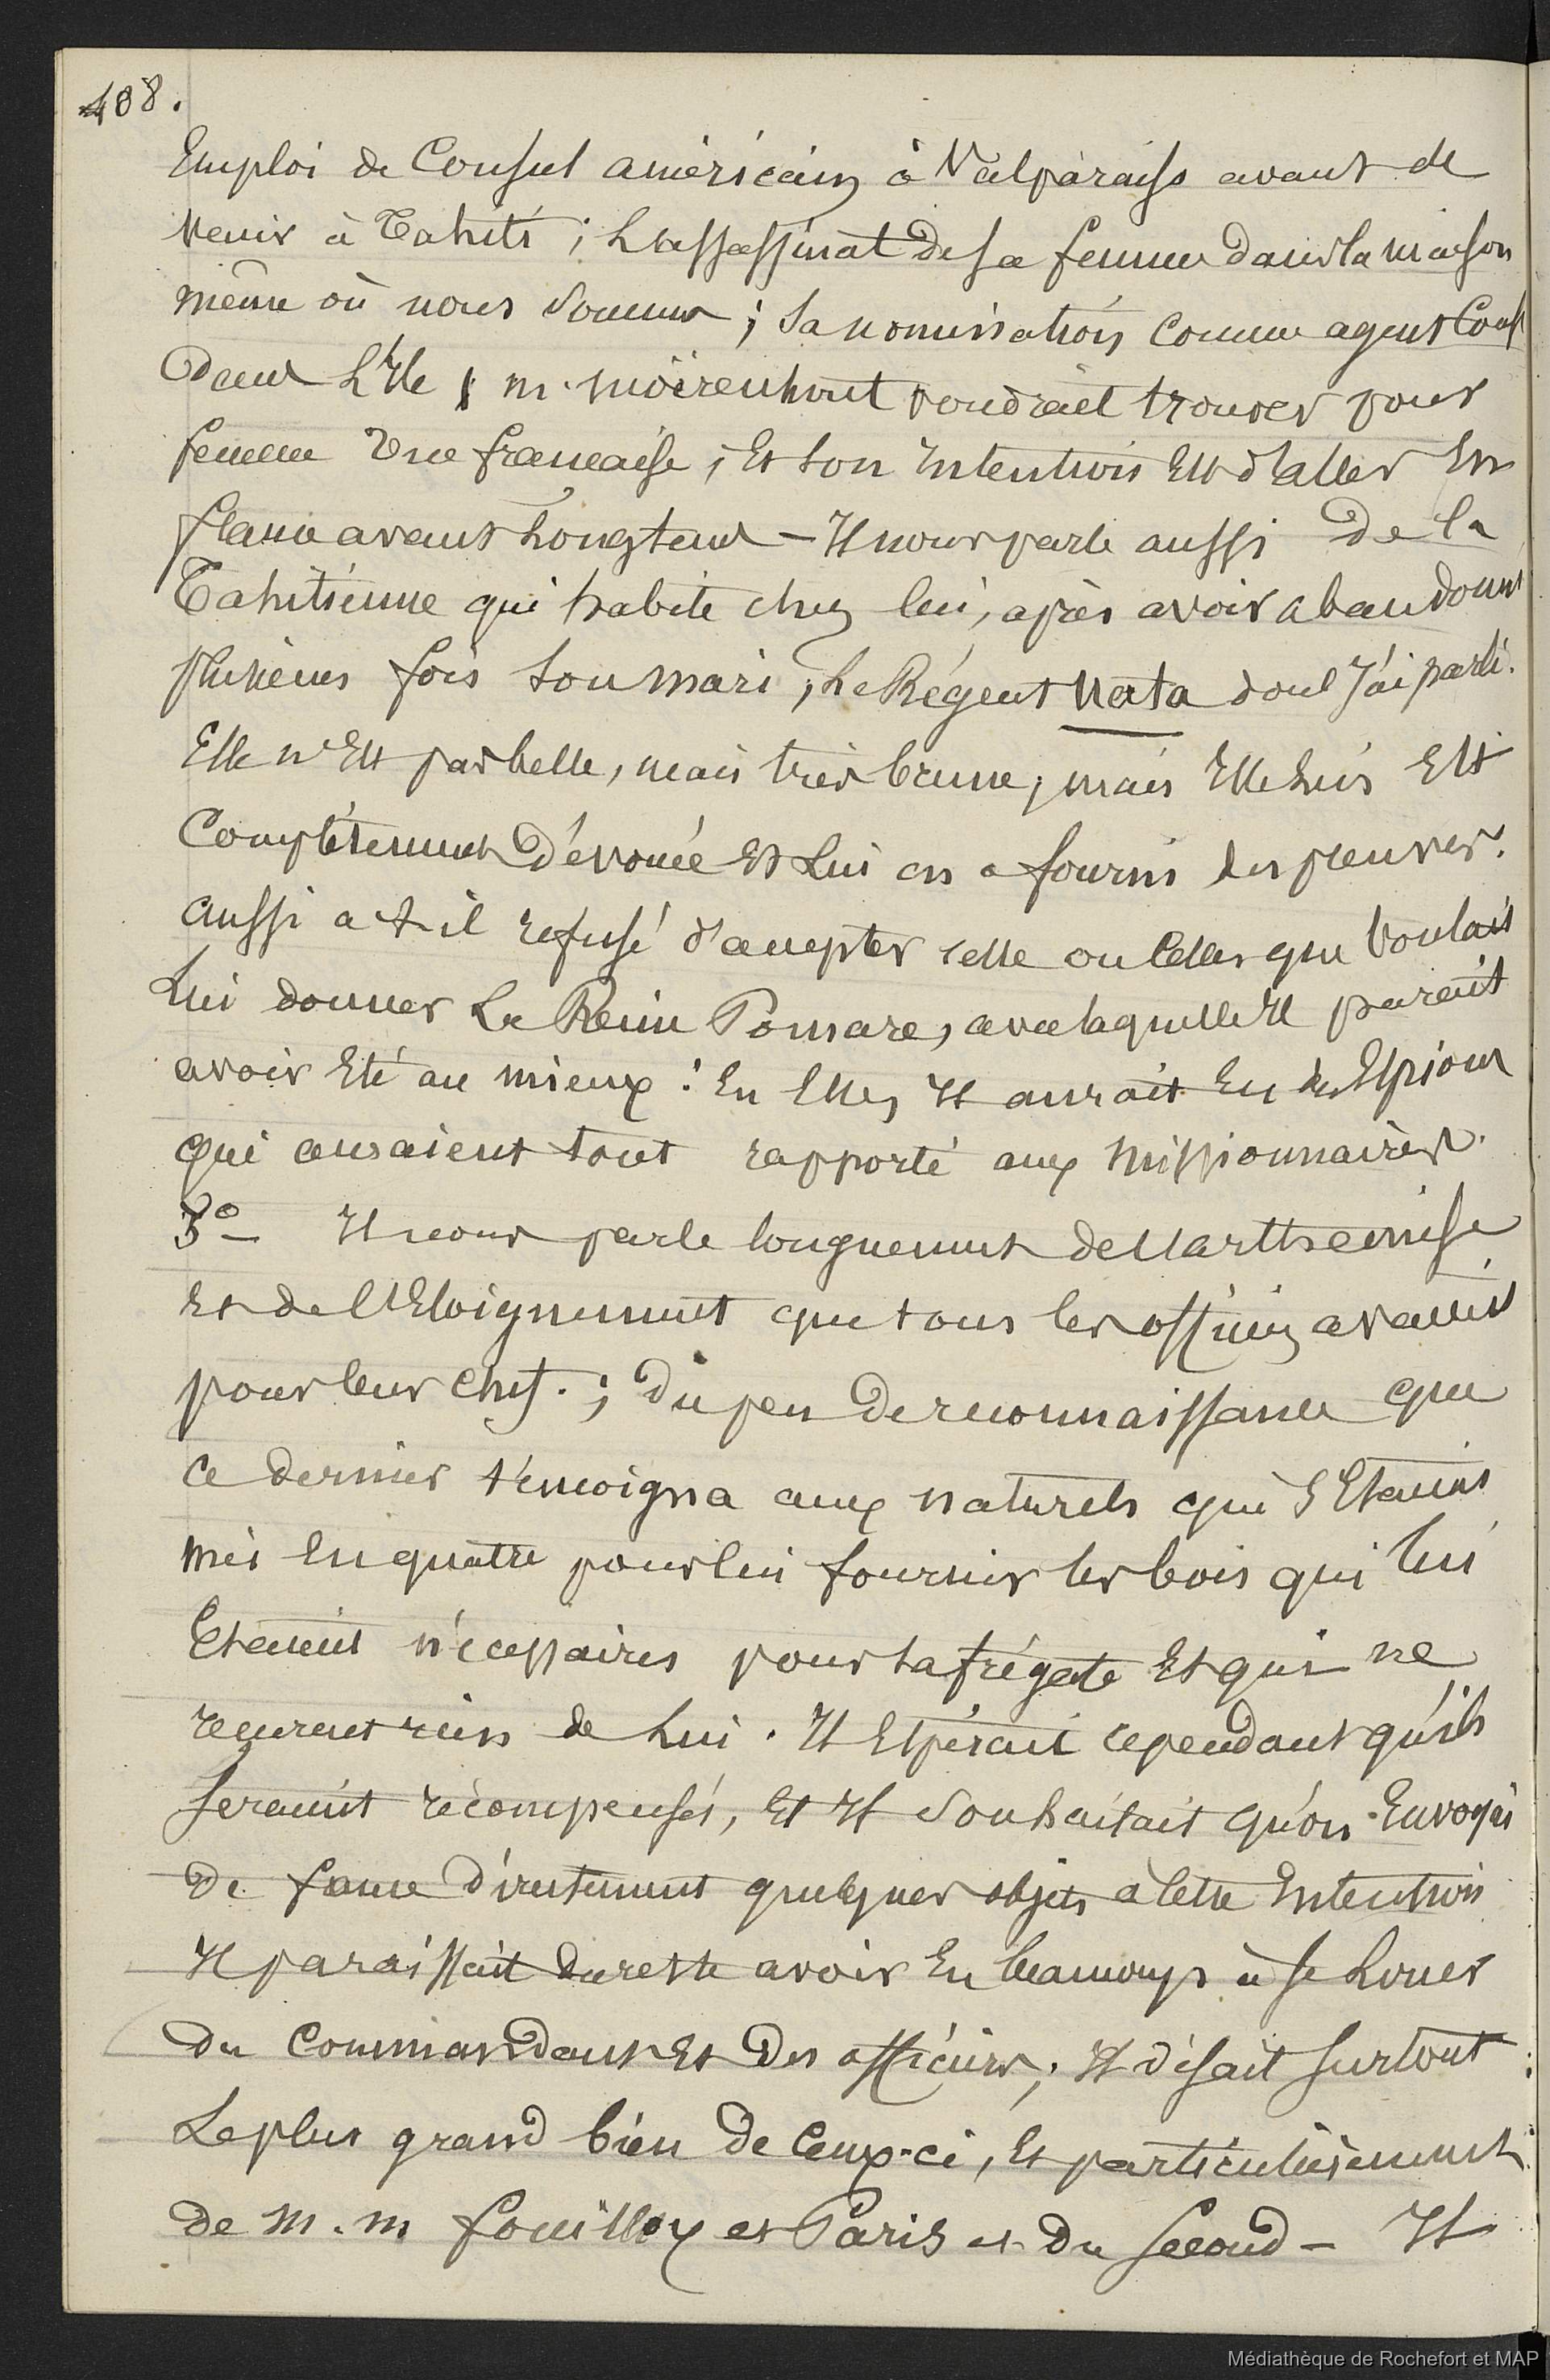 408.
Emploi de Consul américain à Valparaiso avant de
venir à Tahiti ; L'assassinat de sa femme dans la maison
même où nous sommes ; Sa nomination comme agent Cons
dans L'Ile ; m. moërenhout voudrait trouver pour
femme Une française, Et son Intention Est d'aller En
france avant Longtems – Il nous parle aussi De la
Tahitienne qui habite chez lui, après avoir abandonné
plusieurs fois son mari, Le Régent Uata dont J'ai parlé.
Elle n'Est pas belle, mais très brune, mais Elle Lui Est
Complètement Dévouée Et Lui en a fourni des preuves.
aussi a t-il refusé d'accepter celle ou Celles que Voulait
Lui donner La Reine Pomare, avec laquelle Il parait
avoir Eté au mieux : En Elles, Il aurait Eu des Espions
qui auraient tout rapporté aux missionnaires.
3° – Il nous parle longuement de l'artthémise
Et de l'Eloignement que tous les officiers avaient
pour leur chef. ; Du peu De reconnaissance que
Ce dernier témoigna aux naturels qui S'Etaient
mis En quatre pour lui fournir les bois qui lui
Etaient nécessaires pour sa frégate Et qui ne
recurent rien de Lui. Il Espérait cependant qu'ils
Seraient récompensés, Et Il Souhaitait qu'on Envoyât
De france Directement quelques objets à cette Intention
Il paraissait du reste avoir Eu beaucoup à se Louer
Du Commandant Et Des officiers ; Il disait surtout
Le plus grand bien De Ceux-ci, Et particulièrement
de m. m fouilloy et Paris et Du Second – Il
Médiathèque de Rochefort et MAP